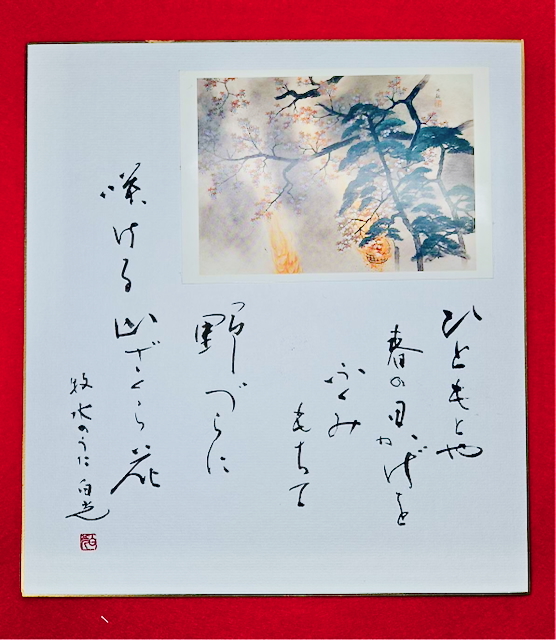 ひともとや
春の日かげを
ふくみ
もちて
野づらに
咲ける山ざくら花
牧水のうた 白光